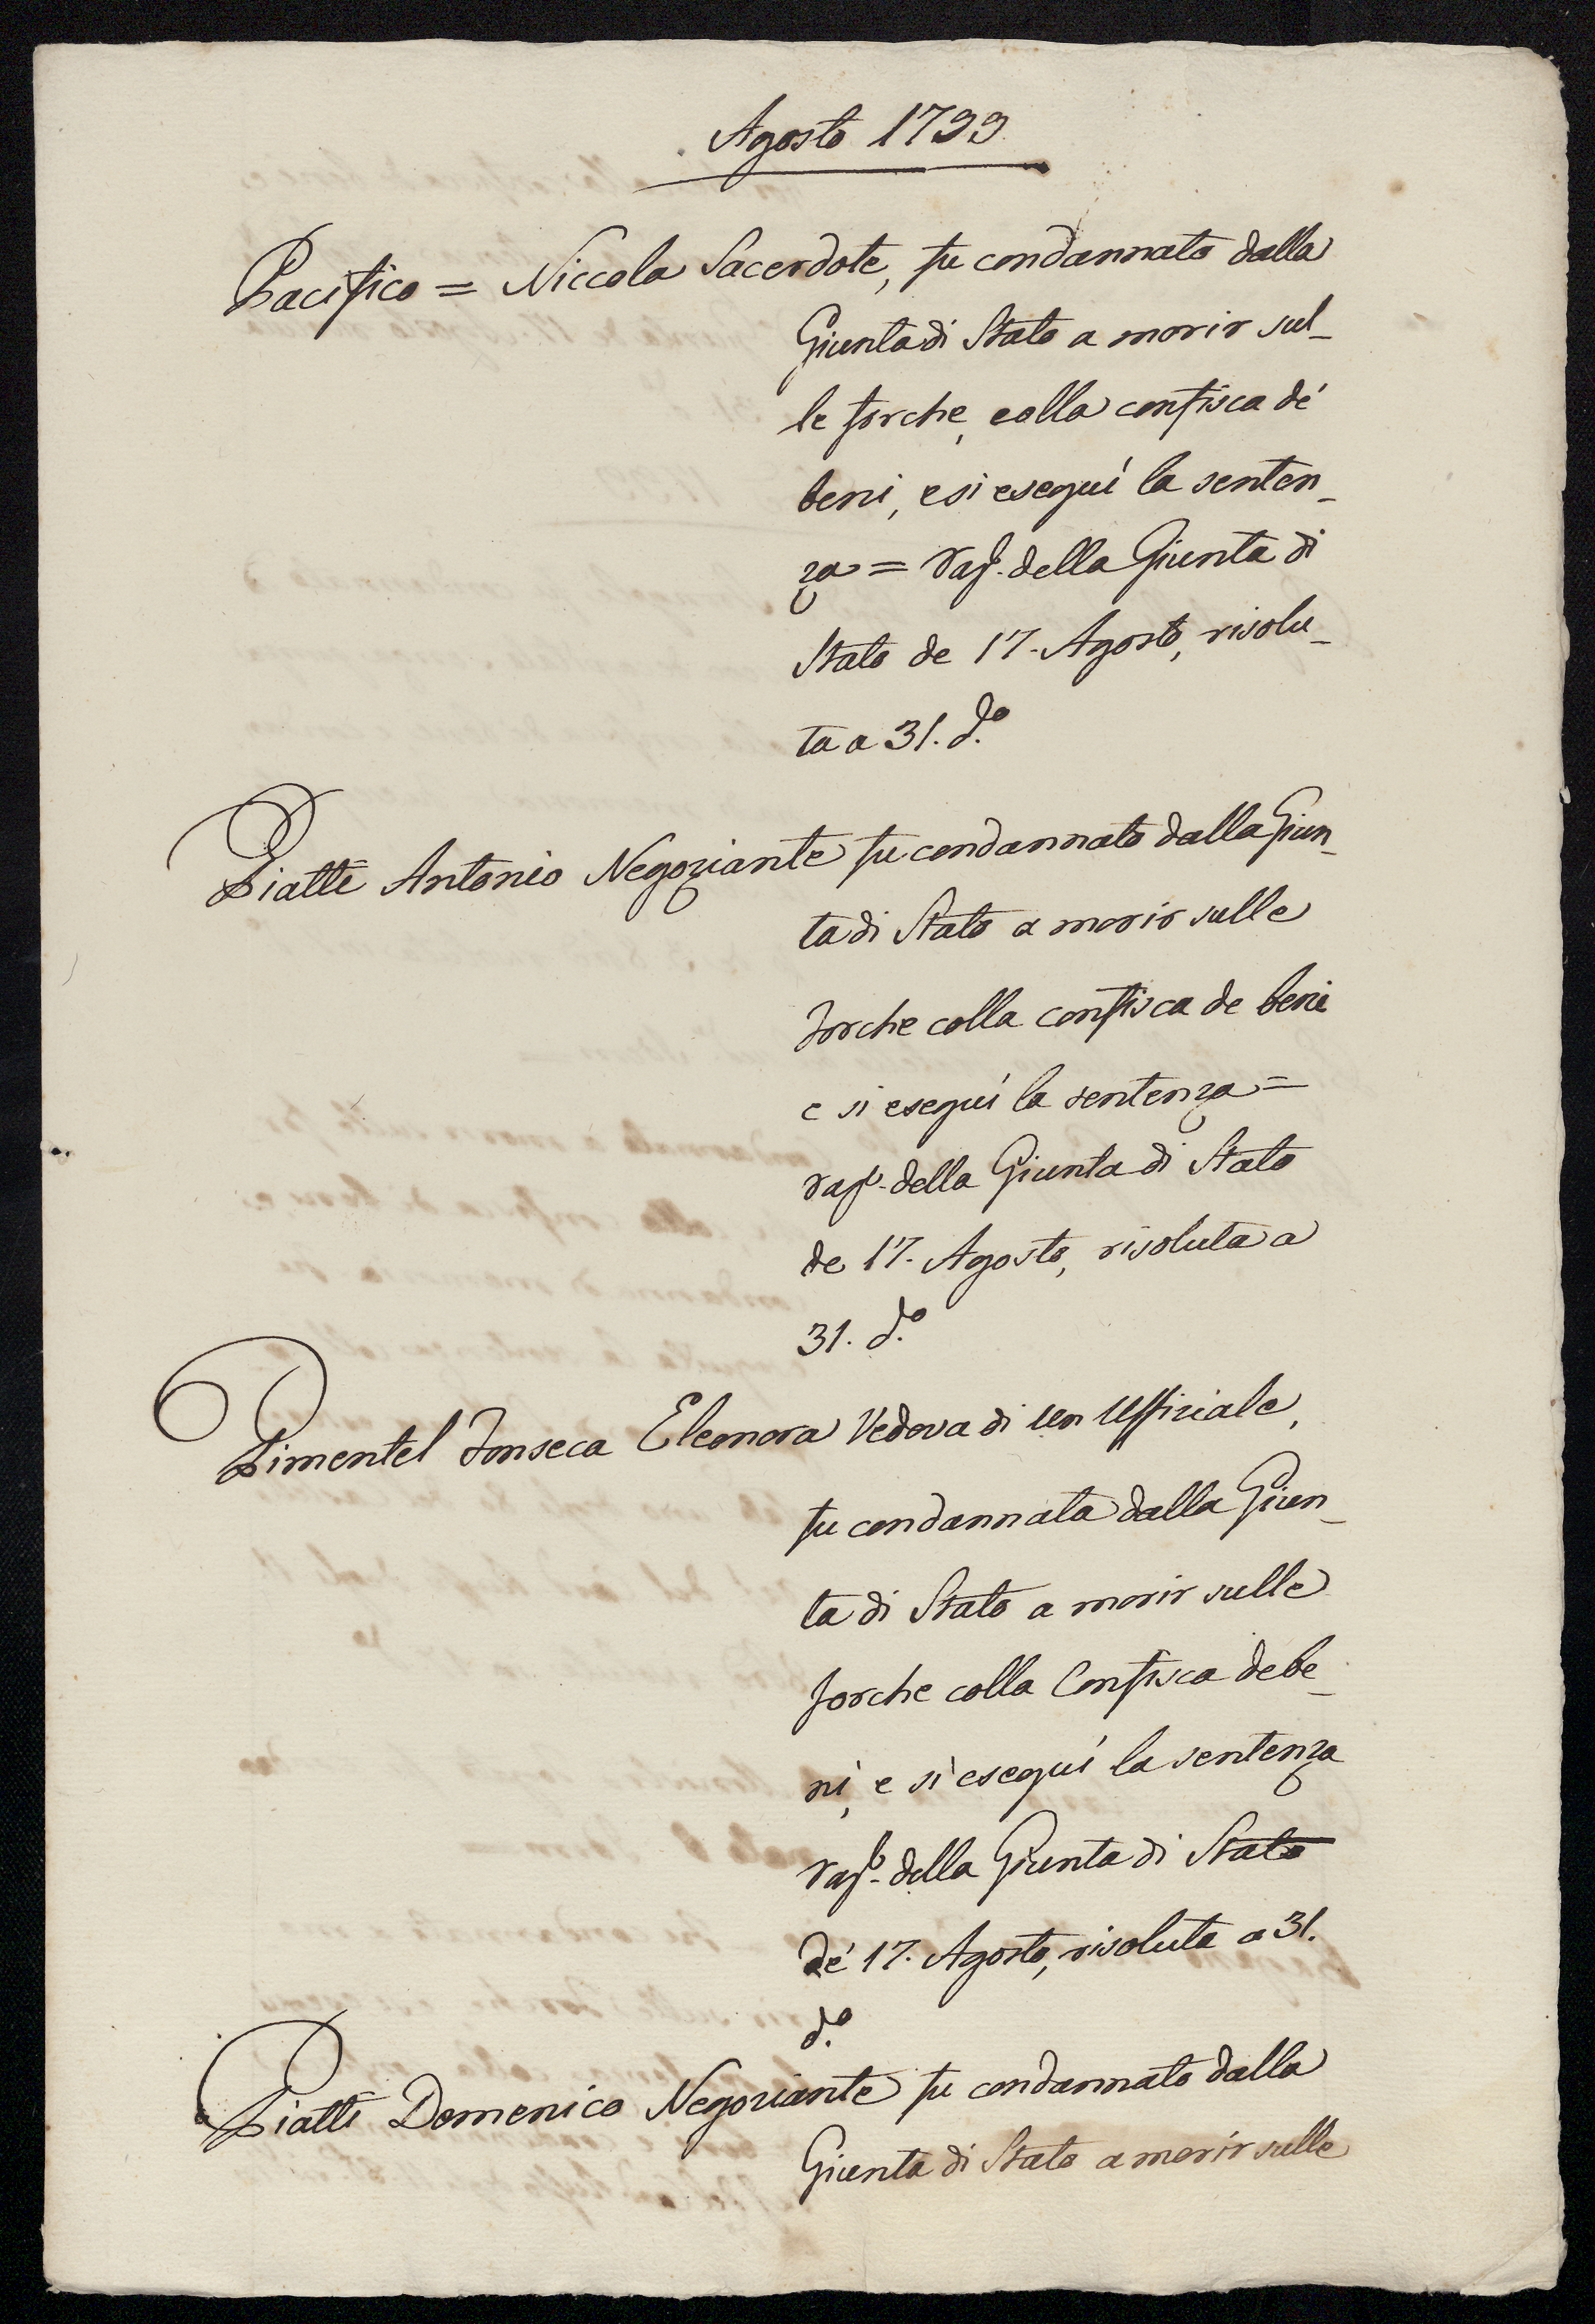 Agosto 1799
Pacifico = Niccola Sacerdote, fu condannato dalla
Giunta di Stato a morir sul_
le forche, colla confisca dé
beni, e si eseguì la senten_
za = rapp. della Giunta di
Stato de 17. Agosto, risolu_
ta a 31. do.
Piatti Antonio Negoziante fu condannato dalla Giun_
ta di Stato a morir sulle
forche colla confisca de beni
e si eseguì la sentenza =
rapp. della Giunta di Stato
de 17. Agosto, risoluta a
31. do.
Pimentel Fonseca Eleonora Vedova di un Uffiziale,
fu condannata dalla Giun_
ta di Stato a morir sulle
forche colla Confisca de be_
ni, e si eseguì la sentenza
rapp. della Giunta di Stato
dé 17. Agosto, risoluta a 31.
do.
Piatti Domenico Negoziante fu condannato dalla
Giunta di Stato a morir sulle